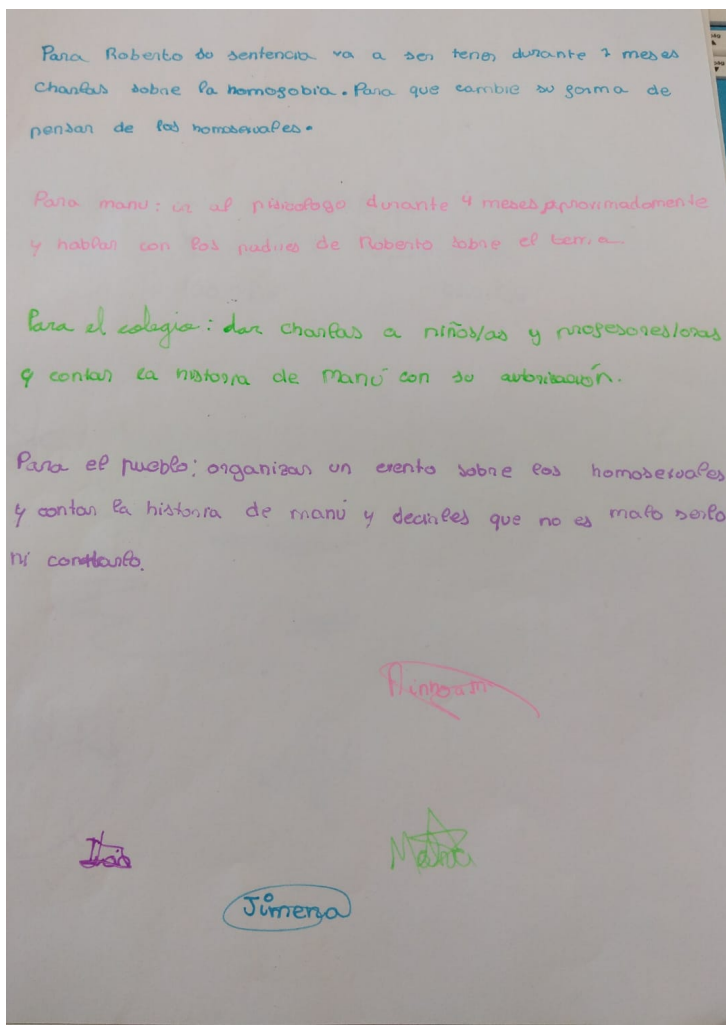 Para Roberto su sentencia va a ser tener durante 7 meses
Charlas sobre la homofobia. Para que cambie su forma de
pensar de los homosexuales.
Para manu: ir al psicologo durante 4 meses aproximadamente
y hablar con los padres de Roberto sobre el tema.
Para el colegio: dar charlas a niños/as y profesores/oras
y contar la historia de Manú con su autorización.
Para el pueblo: organizar un evento sobre los homosexuales
y contar la historia de manú y decirles que no es malo serlo
ni contarlo.
Jimena